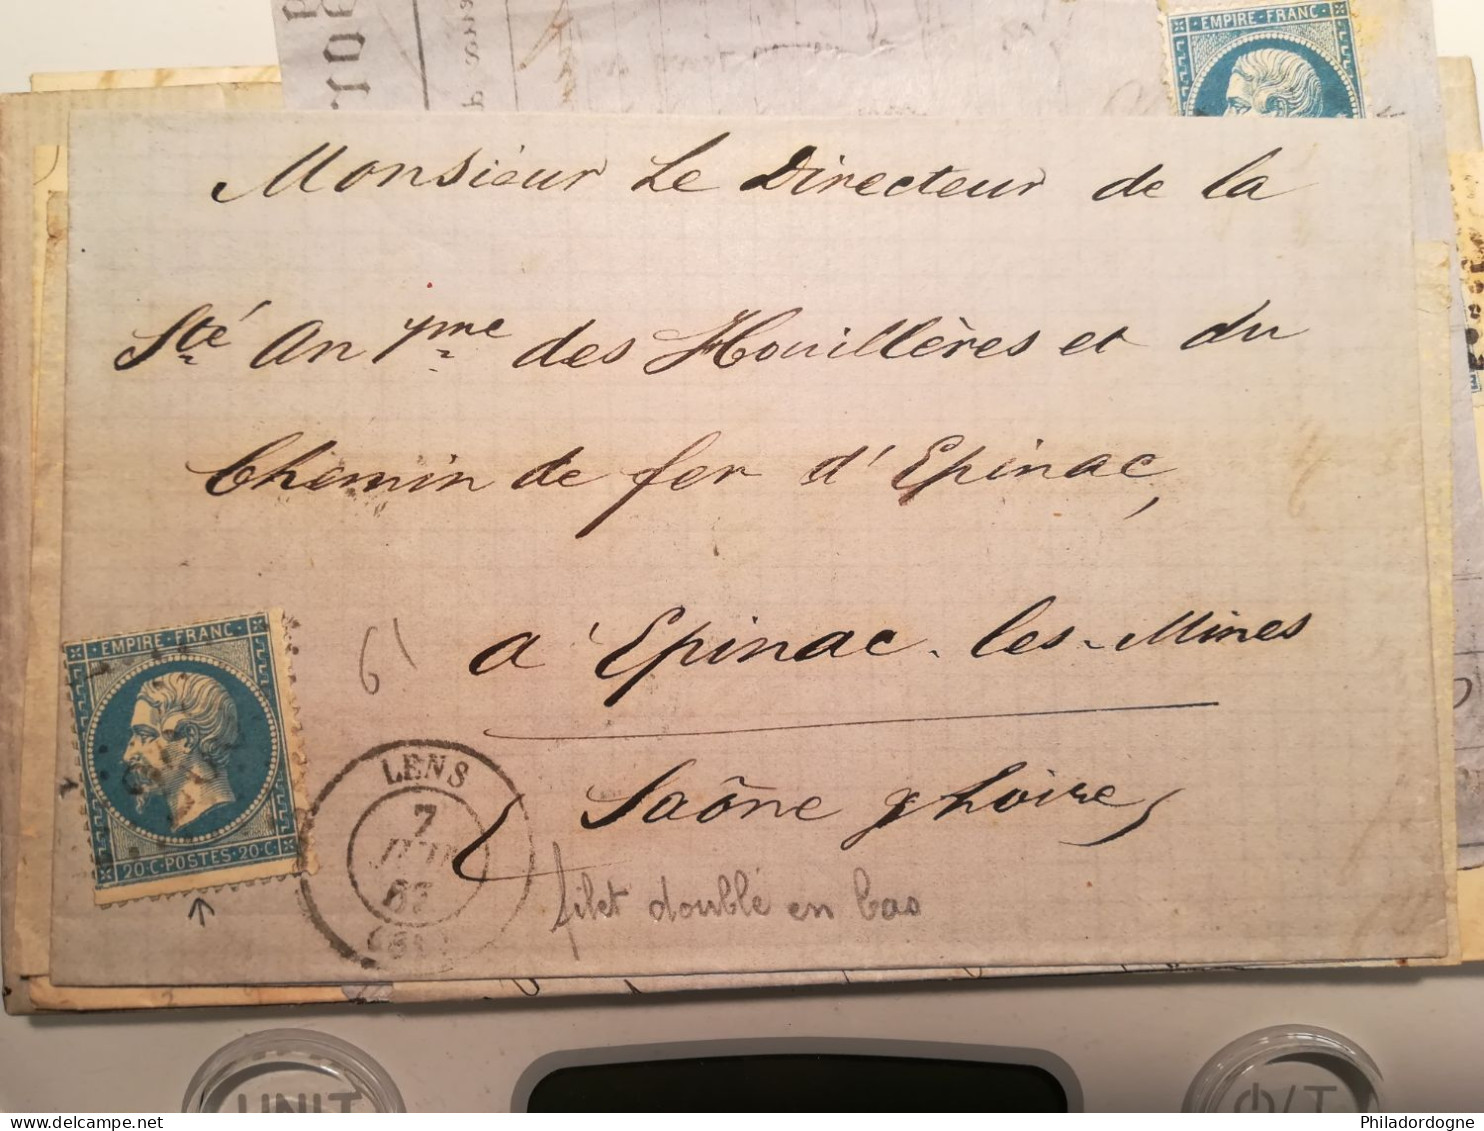 EMPIRE·FRANC
Monsieur Le Directeur de la
Sté Anyme des Houillères et du
Chemin de fer d'Epinac,
à Epinac-les-Mines
Saône & Loire
EMPIRE·FRANC
20·C·POSTES·20·C·
61
LENS
7
67
filet doublé en bas
UNIT
/T
Philadordogne